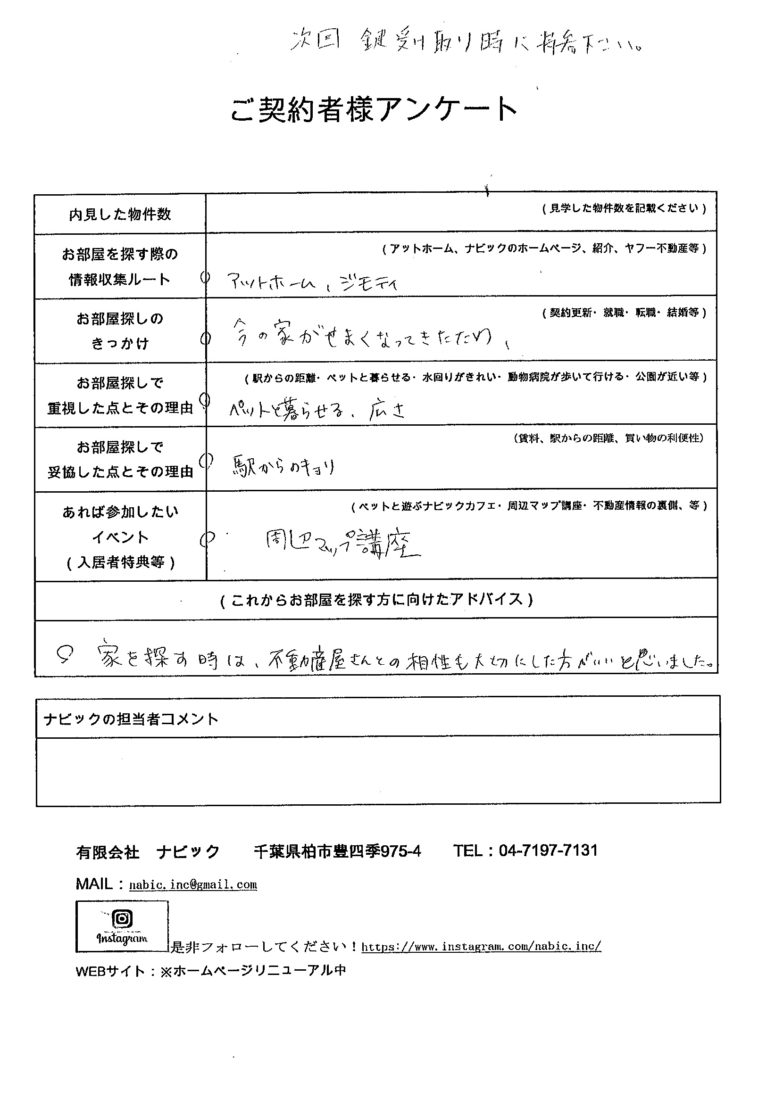 次回 鍵受け取り時に持参下さい。
ご契約者様アンケート
内見した物件数
(見学した物件数を記載ください)
お部屋を探す際の
情報収集ルート
(アットホーム、ナビックのホームページ、紹介、ヤフー不動産等)
アットホーム、ジモティ
お部屋探しの
きっかけ
(契約更新・就職・転職・結婚等)
今の家がせまくなってきたため、
お部屋探しで
重視した点とその理由
(駅からの距離・ペットと暮らせる・水回りがきれい・動物病院が歩いて行ける・公園が近い等)
ペットと暮らせる、広さ
お部屋探しで
妥協した点とその理由
(賃料、駅からの距離、買い物の利便性)
駅からのキョリ
あれば参加したい
イベント
(入居者特典等)
(ペットと遊ぶナビックカフェ・周辺マップ講座・不動産情報の裏側、等)
周辺マップ講座
(これからお部屋を探す方に向けたアドバイス)
家を探す時は、不動産屋さんとの相性も大切にした方がいいと思いました。
ナビックの担当者コメント
有限会社 ナビック 千葉県柏市豊四季975-4 TEL:04-7197-7131
MAIL:nabic.inc@gmail.com
Instagram
是非フォローしてください!https://www.instagram.com/nabic.inc/
WEBサイト:※ホームページリニューアル中